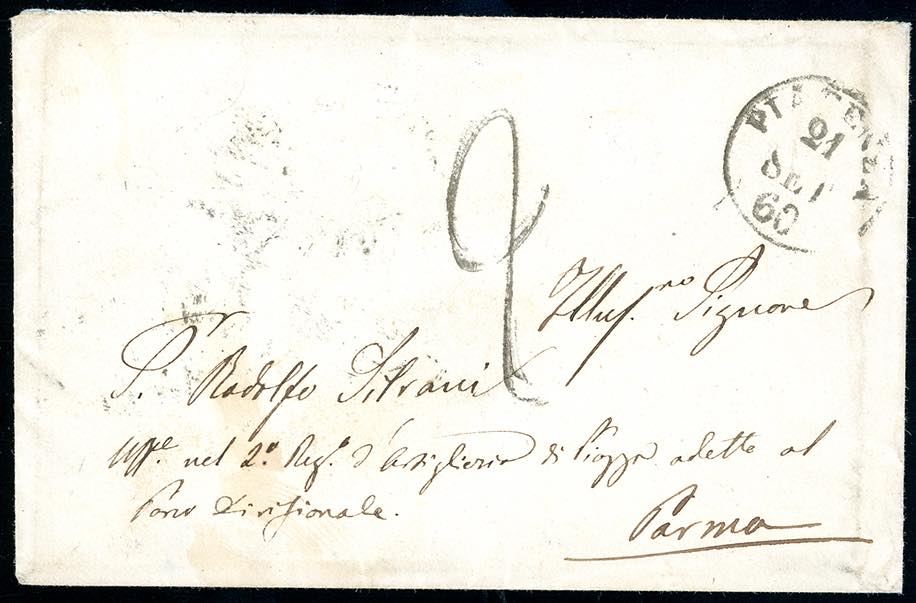 PIACENZA
21
SET
60
2
Illus.mo Signore
S.r Rodolfo
Uff.e nel 2.o Reg.o d'Artiglieria di Piazza adetto al
Parco Divisionale.
Parma